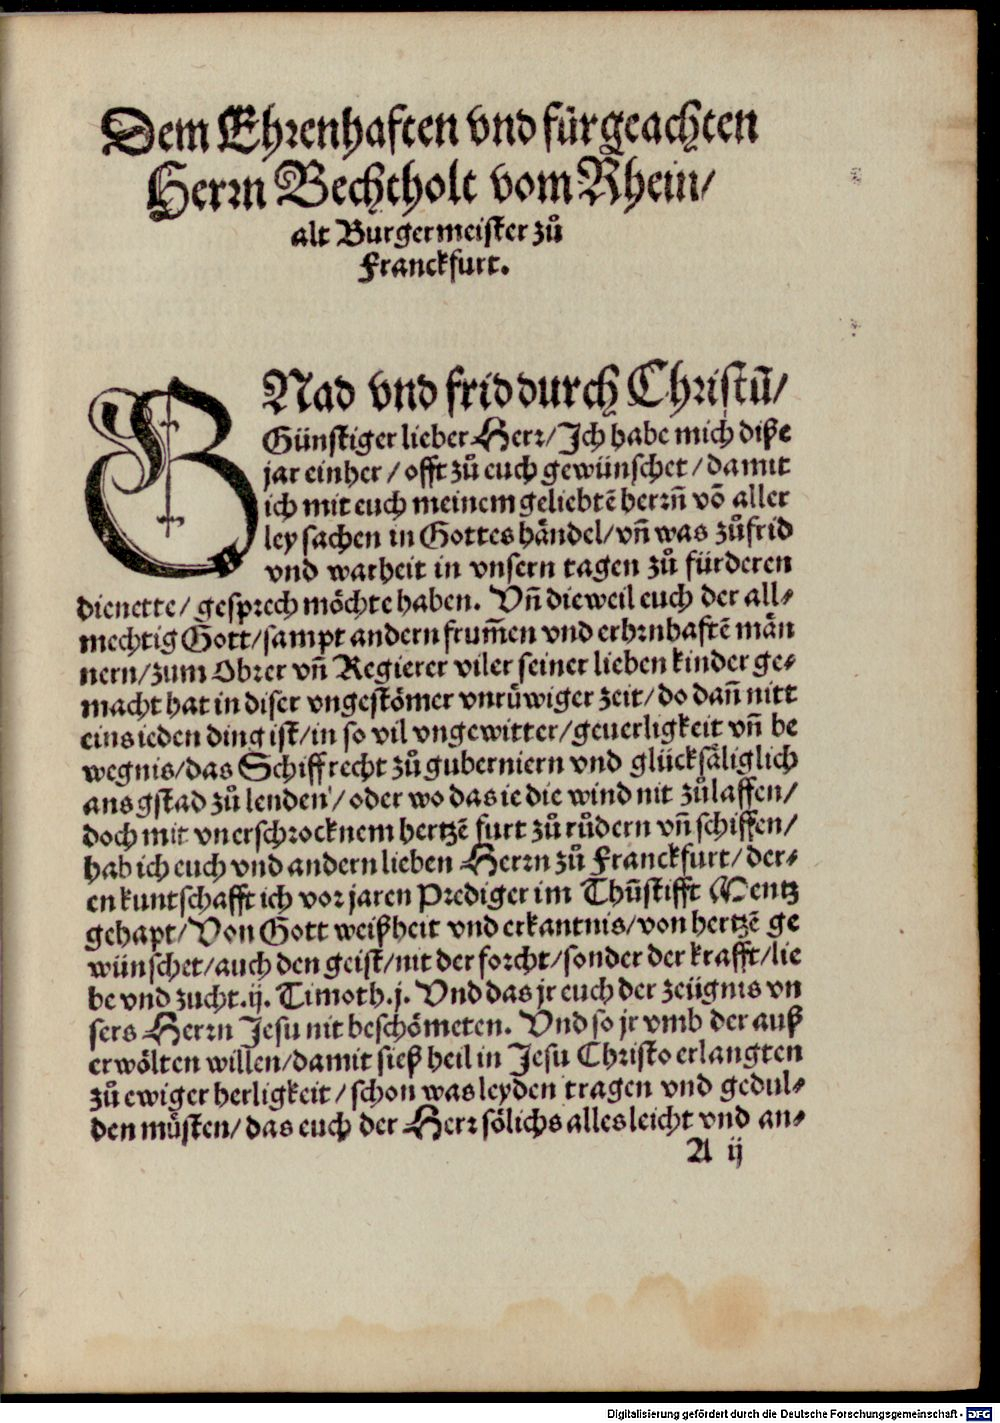 Dem Ehrenhaften vnd fürgeachten
Herrn Bechtholt vom Rhein/
alt Burgermeister zů
Franckfurt.
GNad vnd frid durch Christū/
Günstiger lieber Herr/Ich habe mich diße
jar einher/offt zů euch gewünschet/damit
ich mit euch meinem geliebtē herrn̄ vō aller
ley sachen in Gottes händel/vn̄ was zů frid
vnd warheit in vnsern tagen zů fürderen
dienette/gesprech möchte haben. Vn̄ dieweil euch der all⸗
mechtig Gott/sampt andern frum̄en vnd erhrnhaftē män
nern/zum Obrer vn̄ Regierer viler seiner lieben kinder ge⸗
macht hat in diser vngestömer vnrüwiger zeit/do dan̄ nitt
eins ieden ding ist/in so vil vngewitter/geuerligkeit vn̄ be
wegnis/das Schiff recht zů guberniern vnd glücksäliglich
ans gstad zů lenden/oder wo das ie die wind nit zůlassen/
doch mit vnerschrocknem hertzē furt zů růdern vn̄ schiffen/
hab ich euch vnd andern lieben Herrn zů Franckfurt/der⸗
en kuntschafft ich vor jaren Prediger im Thům̄stifft Mentz
gehapt/Von Gott weißheit vnd erkantnis/von hertzē ge
wünschet/auch den geist/nit der forcht/sonder der krafft/lie
be vnd zucht.ij. Timoth.j. Vnd das jr euch der zeügnis vn
sers Herrn Jesu nit beschömeten. Vnd so jr vmb der auß
erwölten willen/damit sieß heil in Jesu Christo erlangten
zů ewiger herligkeit/schon was leyden tragen vnd gedul⸗
den müsten/das euch der Herr sölichs alles leicht vnd an⸗
A ij
Digitalisierung gefördert durch die Deutsche Forschungsgemeinschaft - DFG